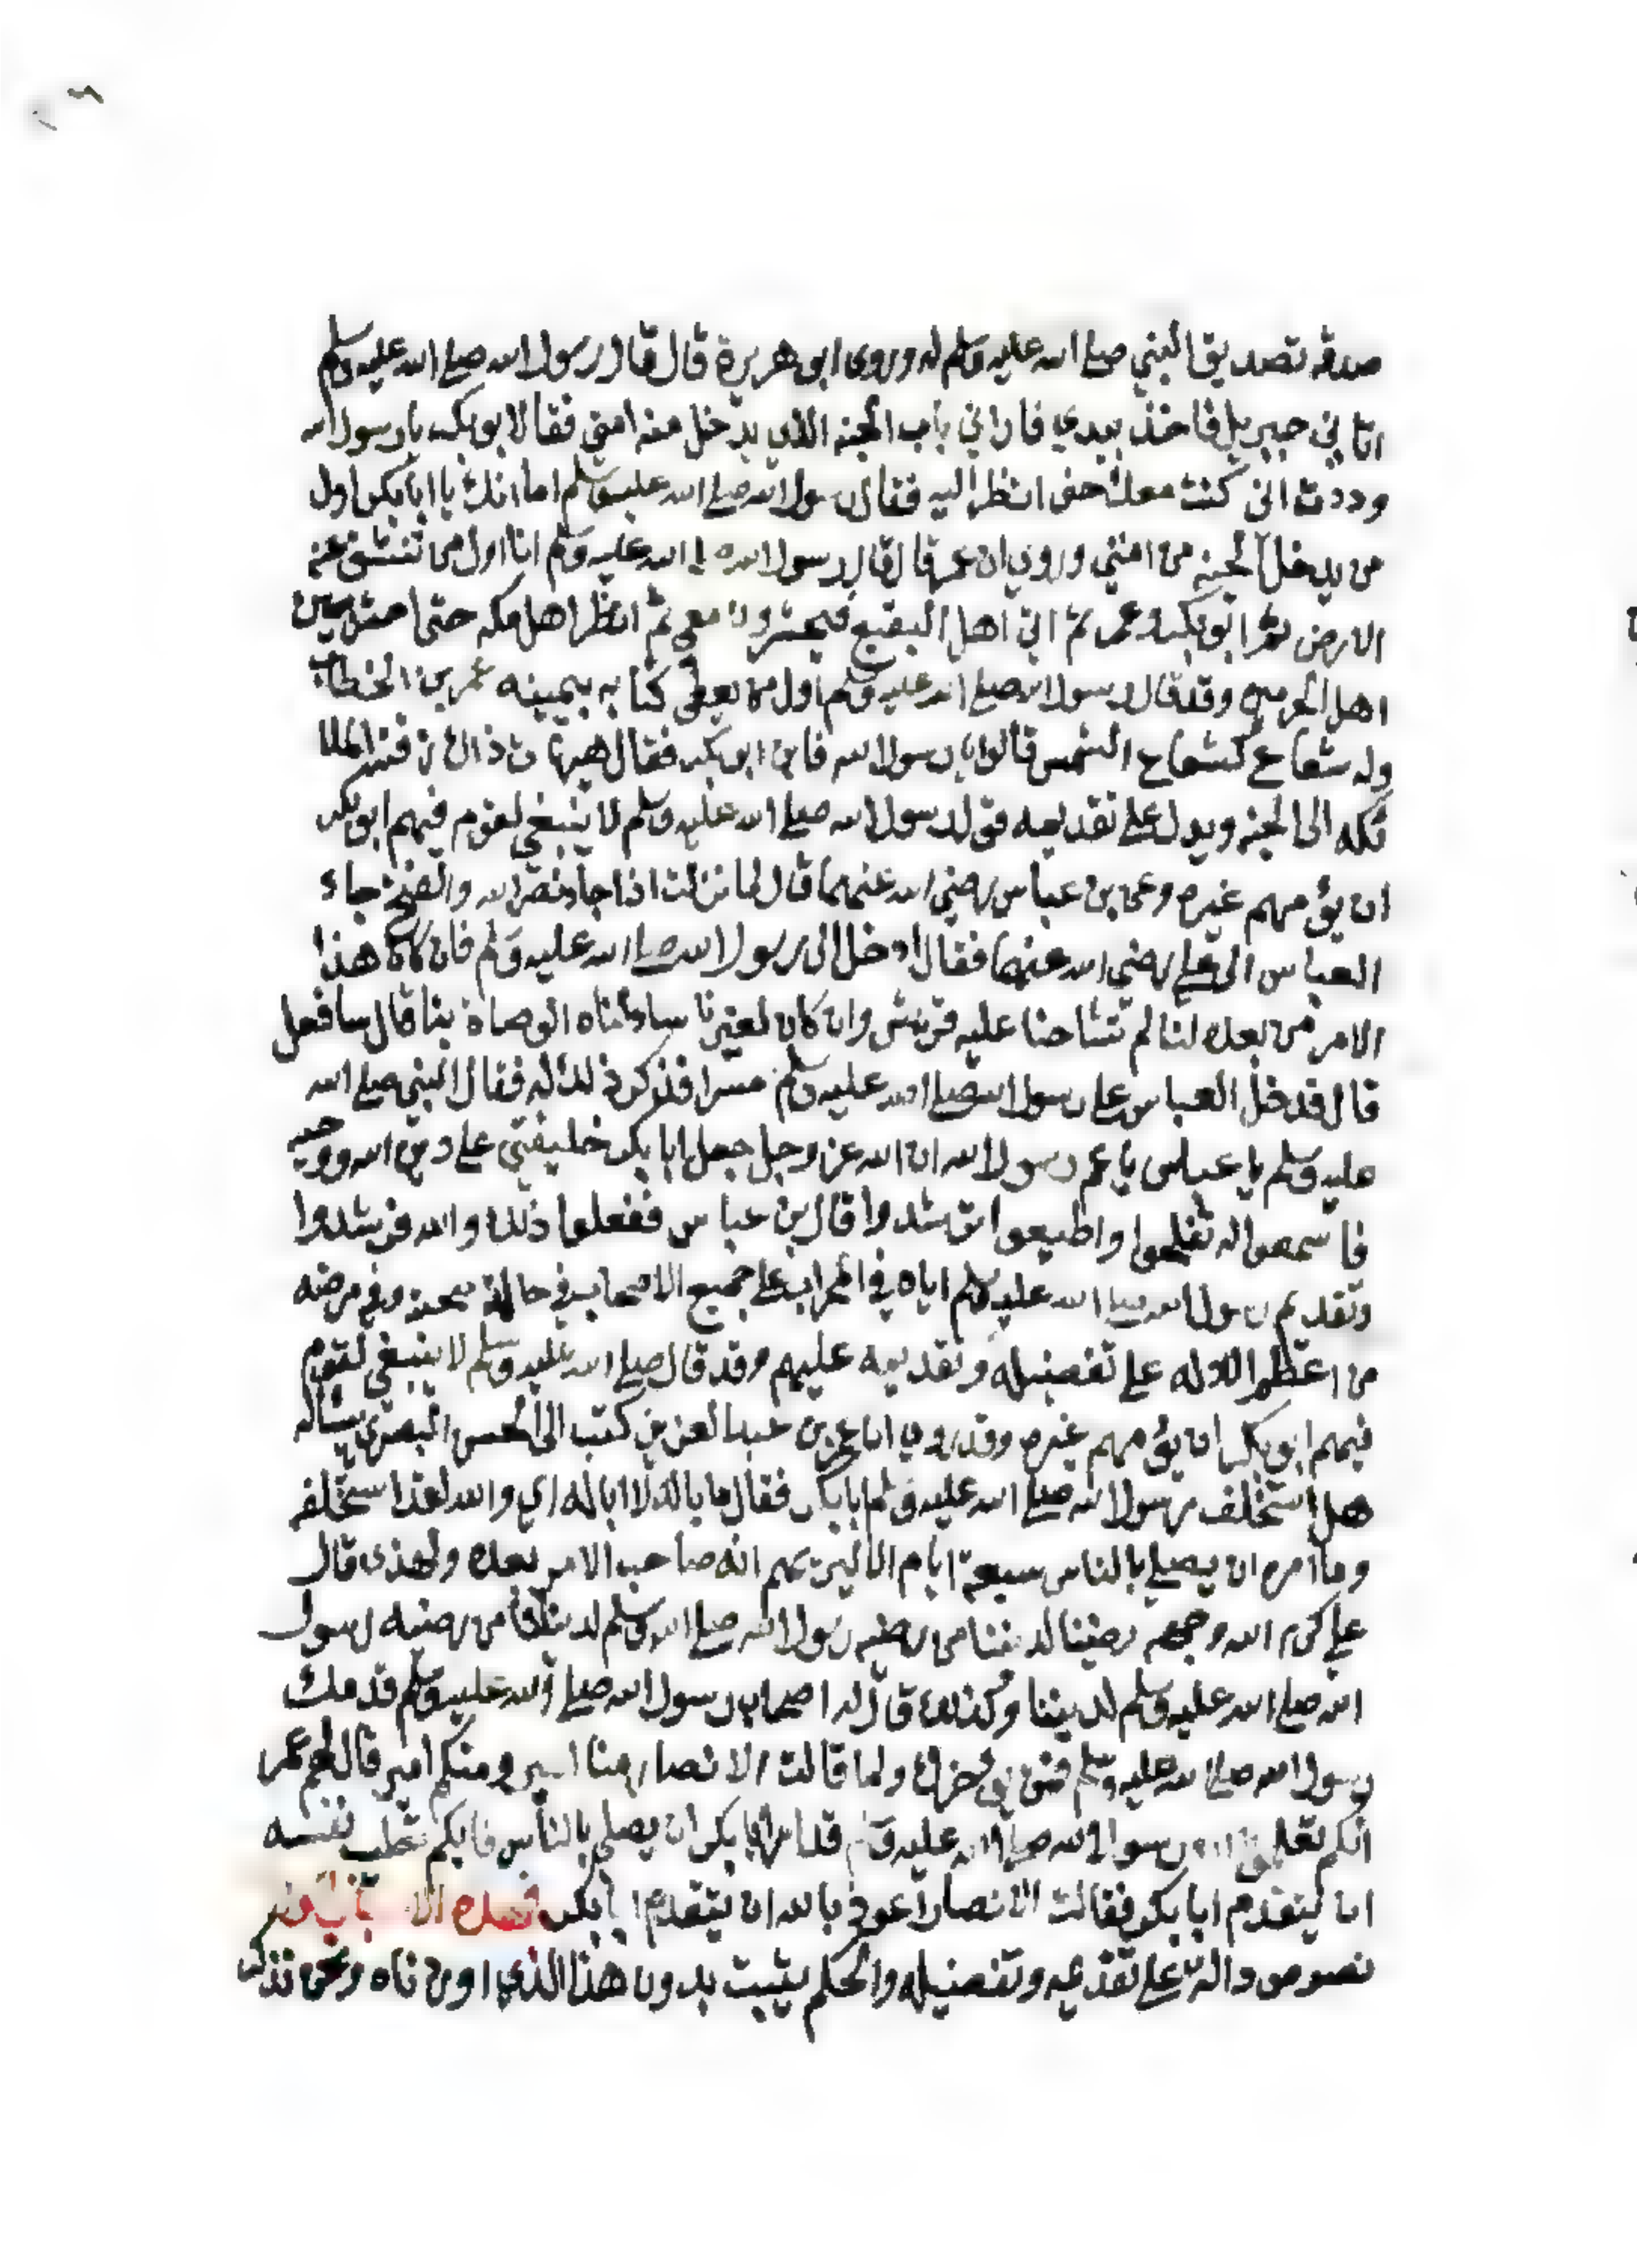 صدقه تصديق النبي صلى الله عليه وسلم له وروى ابو هريرة قال قال رسول الله صلى الله عليه وسلم
اتاني جبريل فاخذ بيدي فاراني باب الجنه الذي يدخل منه امتي فقال ابو بكر يا رسول الله
وددت انى كنت معك حتى انظر اليه فقال رسول الله صلى الله عليه وسلم اما انك يا ابا بكر اول
من يدخل الجنه من امتي وروي ابن عمر قال قال رسول الله صلى الله عليه وسلم انا اول من تنشق عنه
الارض ثم ابو بكر وعمر ثم اتى اهل البقيع فيحشرون معي ثم انتظر اهل مكه حتى احشر بين
اهل الحرمين وقد قال رسول الله صلى الله عليه وسلم اول من يعطى كتابه بيمينه عمر بن الخطاب
وله شعاع كشعاع الشمس قالوا يا رسول الله فاين ابو بكر فقال هيهات ذاك زفته الملا
ئكه الى الجنه ويدل على تقديمه قول رسول الله صلى الله عليه وسلم لا ينبغي لقوم فيهم ابو بكر
ان يؤمهم غيره وعن بن عباس رضي الله عنهما قال لما نزلت اذا جاء نصر الله والفتح جاء
العباس الى علي رضي الله عنهما فقال ادخل الى رسول الله صلى الله عليه وسلم فان كان هذا
الامر من بعده لنا لم تشاحنا عليه قريش وان كان لغيرنا سالناه الوصاة بنا قال سافعل
قال فدخل العباس على رسول الله صلى الله عليه وسلم سرا فذكر ذلك له فقال النبي صلى الله
عليه وسلم يا عباس يا عم رسول الله ان الله عز وجل جعل ابا بكر خليفتي على دين الله ووحيه
فاسمعوا له تفلحوا واطيعوا ترشدوا قال بن عباس ففعلوا ذلك والله فرشدوا
وتقديم رسول الله صلى الله عليه وسلم اياه في المحراب على جميع الاصحاب في حالة صحته وفي مرضه
من اعظم الادله على تفضيله وتقديمه عليهم وقد قال صلى الله عليه وسلم لا ينبغي لقوم
فيهم ابو بكر ان يؤمهم غيره وقد روي ان عمر بن عبد العزيز كتب الى الحسن البصري يسأله
هل استخلف رسول الله صلى الله عليه وسلم ابا بكر فقال ما باله لا ابا له اي والله لقد استخلفه
وما امره ان يصلي بالناس سبعة ايام الا ليريهم انه صاحب الامر بعده ولهذى قال
علي كرم الله وجهه رضينا لدنيانا من رضيه رسول الله صلى الله وسلم لديننا من رضيه رسول
الله صلى الله عليه وسلم لديننا وكذلك قال له اصحاب رسول الله صلى الله عليه وسلم قدمك
رسول الله صلى الله عليه وسلم فمن يؤخرك ولما قالت الانصار منا امير ومنكم امير قال لهم عمر
انكم تعلمون ان رسول الله صلى الله عليه وسلم قد امر ابا بكر ان يصلي بالناس فايكم تطيب نفسه
ان يتقدم ابا بكر فقالت الانصار اعوذ بالله ان يتقدم ابا بكر فهذه
نصوص دالة على تقديمه وتفضيله والحكم يثبت بدون هذا الذي اوردناه ونحن نذكر